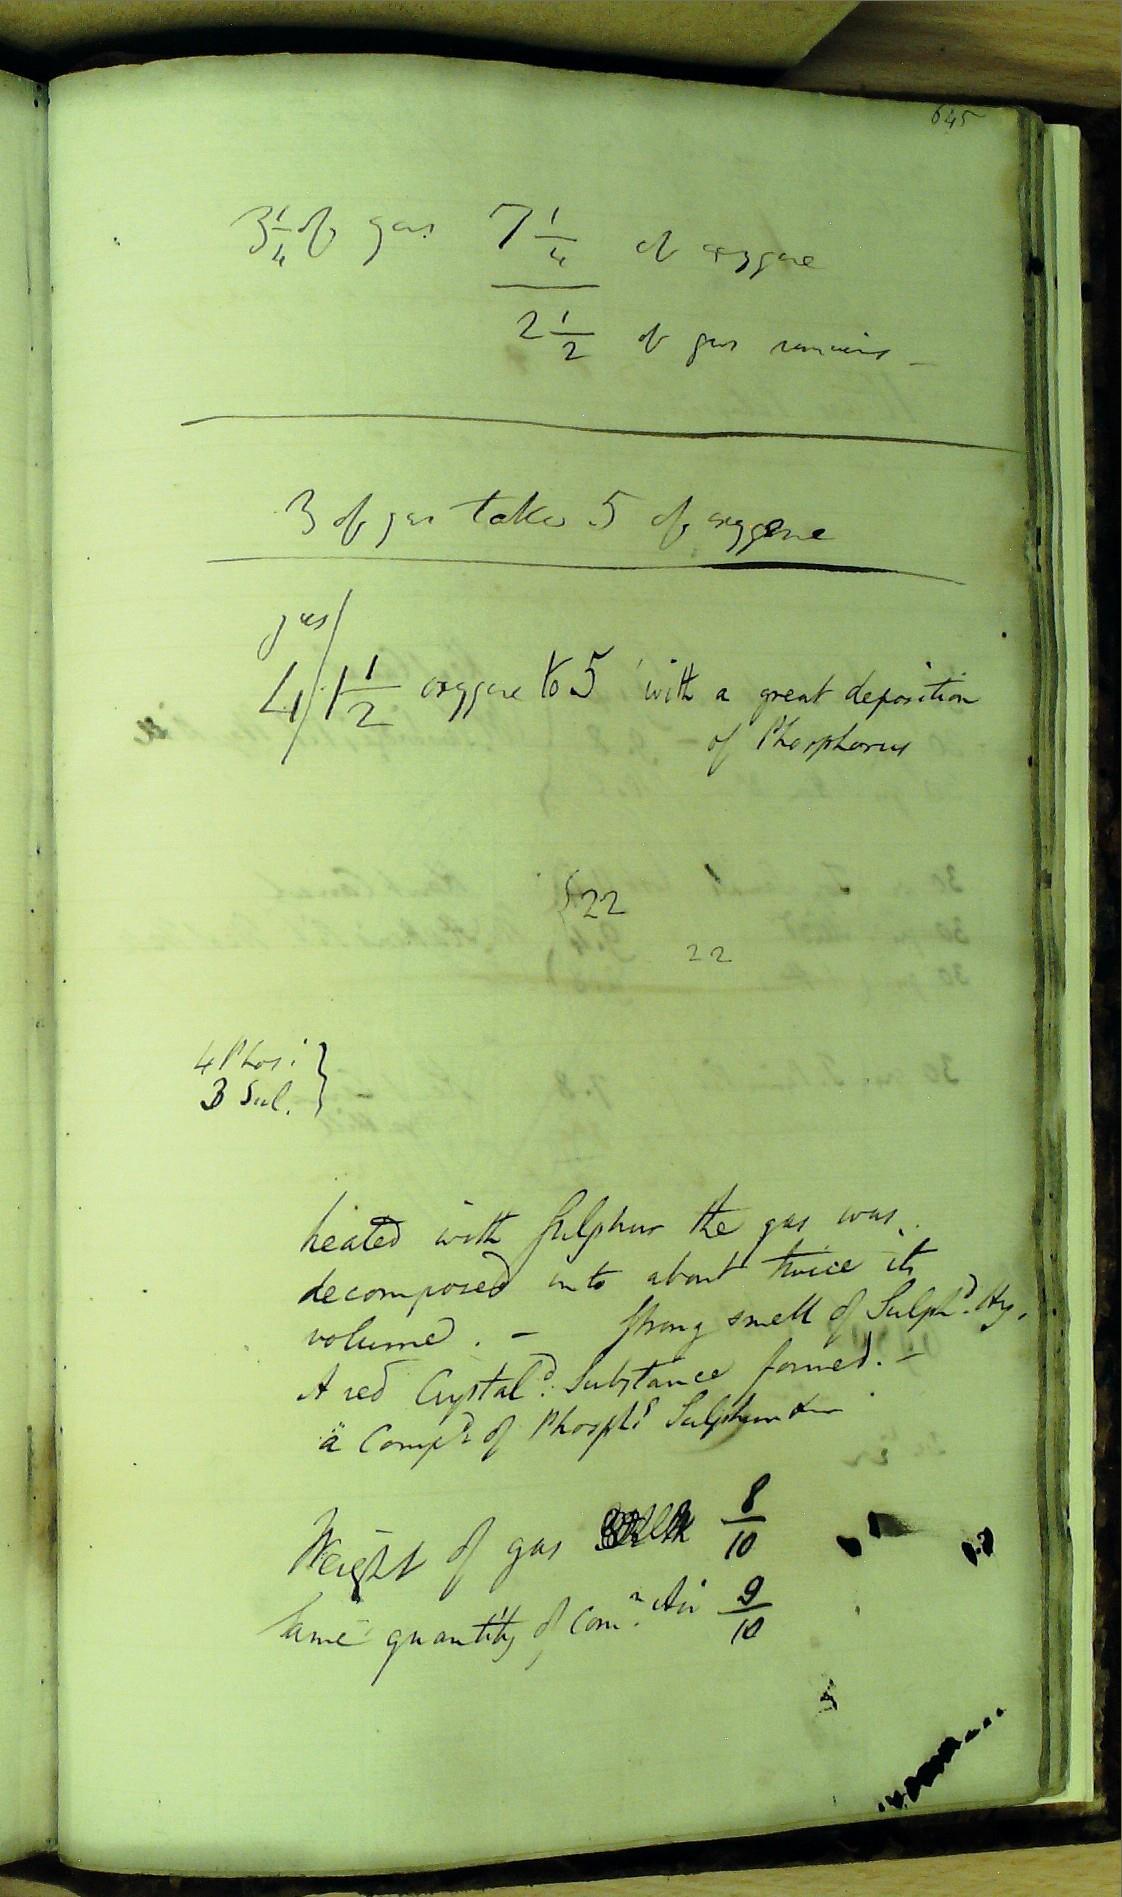 645
3 1/4 of gas 7 1/4 of oxygene
2 1/2 of gas remains –
3 of gas take 5 of oxygene
gas
4/1 1/2 oxygene to 5 with a great deposition
of Phosphorus
{22
22
4 Phos: }
3 Sul. }
heated with Sulphur the gas was
decomposed into about twice its
volume. – strong smell of Sulphd. Hy.
A red Crystald: Substance formed. –
a Compd: of Phosphs Sulphur
Weight of gas 8/10
Same quantity of Comn. Air 9/10